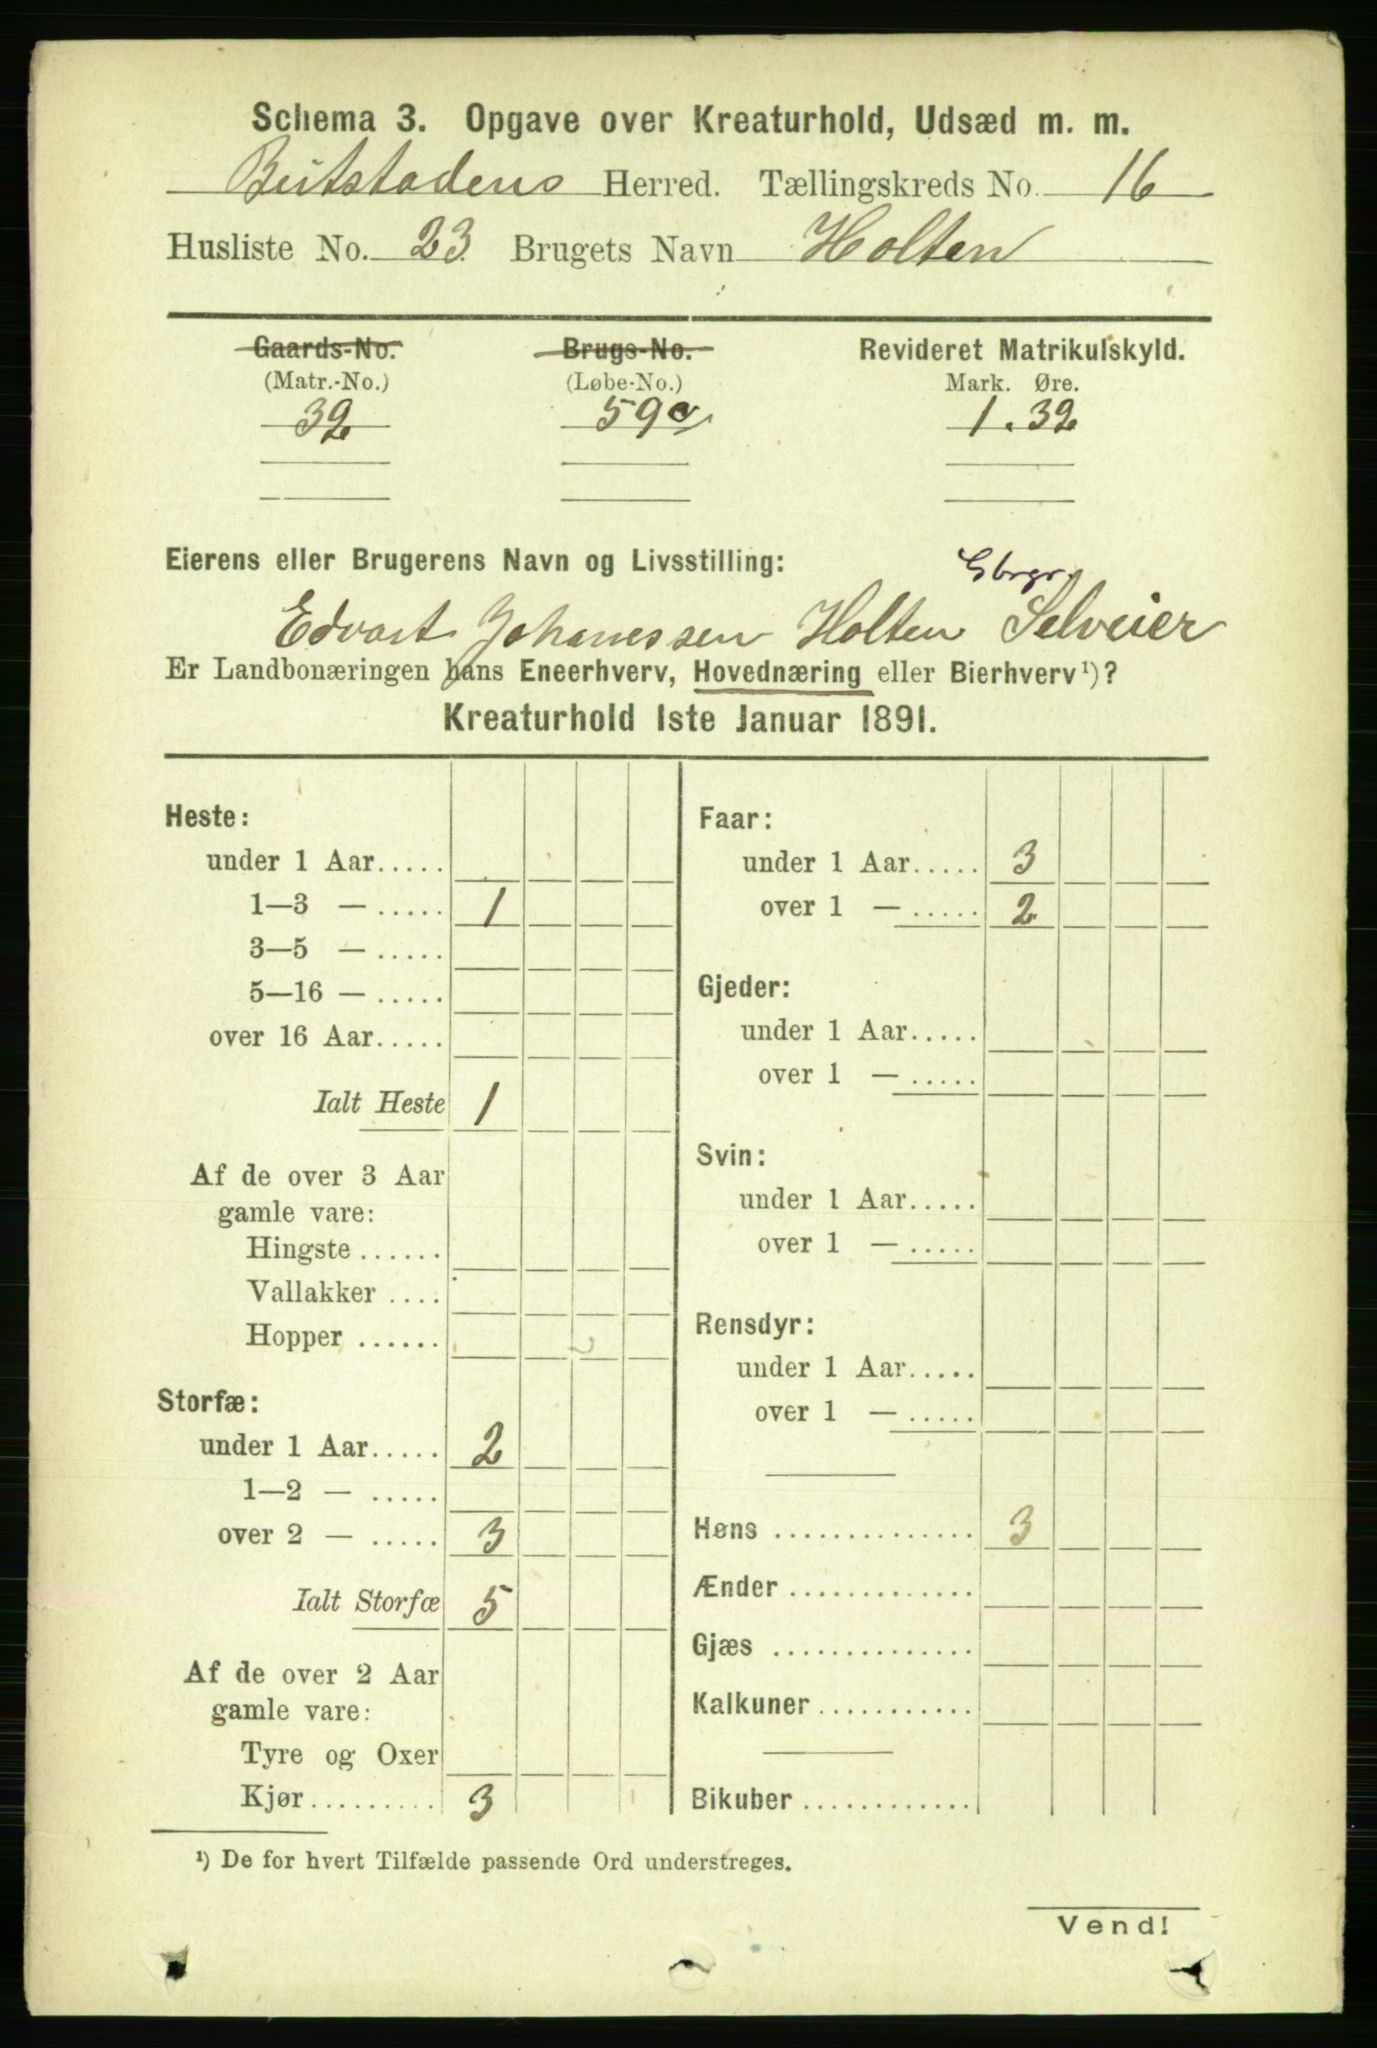 Schema 3. Opgave over Kreaturhold, Udsæd m. m.
Beitstadens Herred. Tællingskreds No. 16
Husliste No. 23 Brugets Navn Holten
Gaards-No. Brugs-No. Revideret Matrikulskyld.
(Matr.-No.) (Løbe-No.) Mark. Øre.
32 59a 1.32
Eierens eller Brugerens Navn og Livsstilling:
Gbrgr.
Edvart Johanessen Holten Selveier
Er Landbonæringen hans Eneerhverv, Hovednæring eller Bierhverv¹)?
Kreaturhold 1ste Januar 1891.
Heste:
under 1 Aar.....
1—3 — ..... 1
3—5 — .....
5—16 — .....
over 16 Aar.....
Ialt Heste 1
Af de over 3 Aar
gamle vare:
Hingste ......
Vallakker ....
Hopper ......
Storfæ:
under 1 Aar..... 2
1—2 — .....
over 2 — ..... 3
Ialt Storfæ 5
Af de over 2 Aar
gamle vare:
Tyre og Oxer
Kjør......... 3
Faar:
under 1 Aar..... 3
over 1 — ..... 2
Gjeder:
under 1 Aar.....
over 1 — .....
Svin:
under 1 Aar.....
over 1 — .....
Rensdyr:
under 1 Aar.....
over 1 — .....
Høns .............. 3
Ænder .............
Gjæs ..............
Kalkuner ...........
Bikuber ............
¹) De for hvert Tilfælde passende Ord understreges.
Vend!